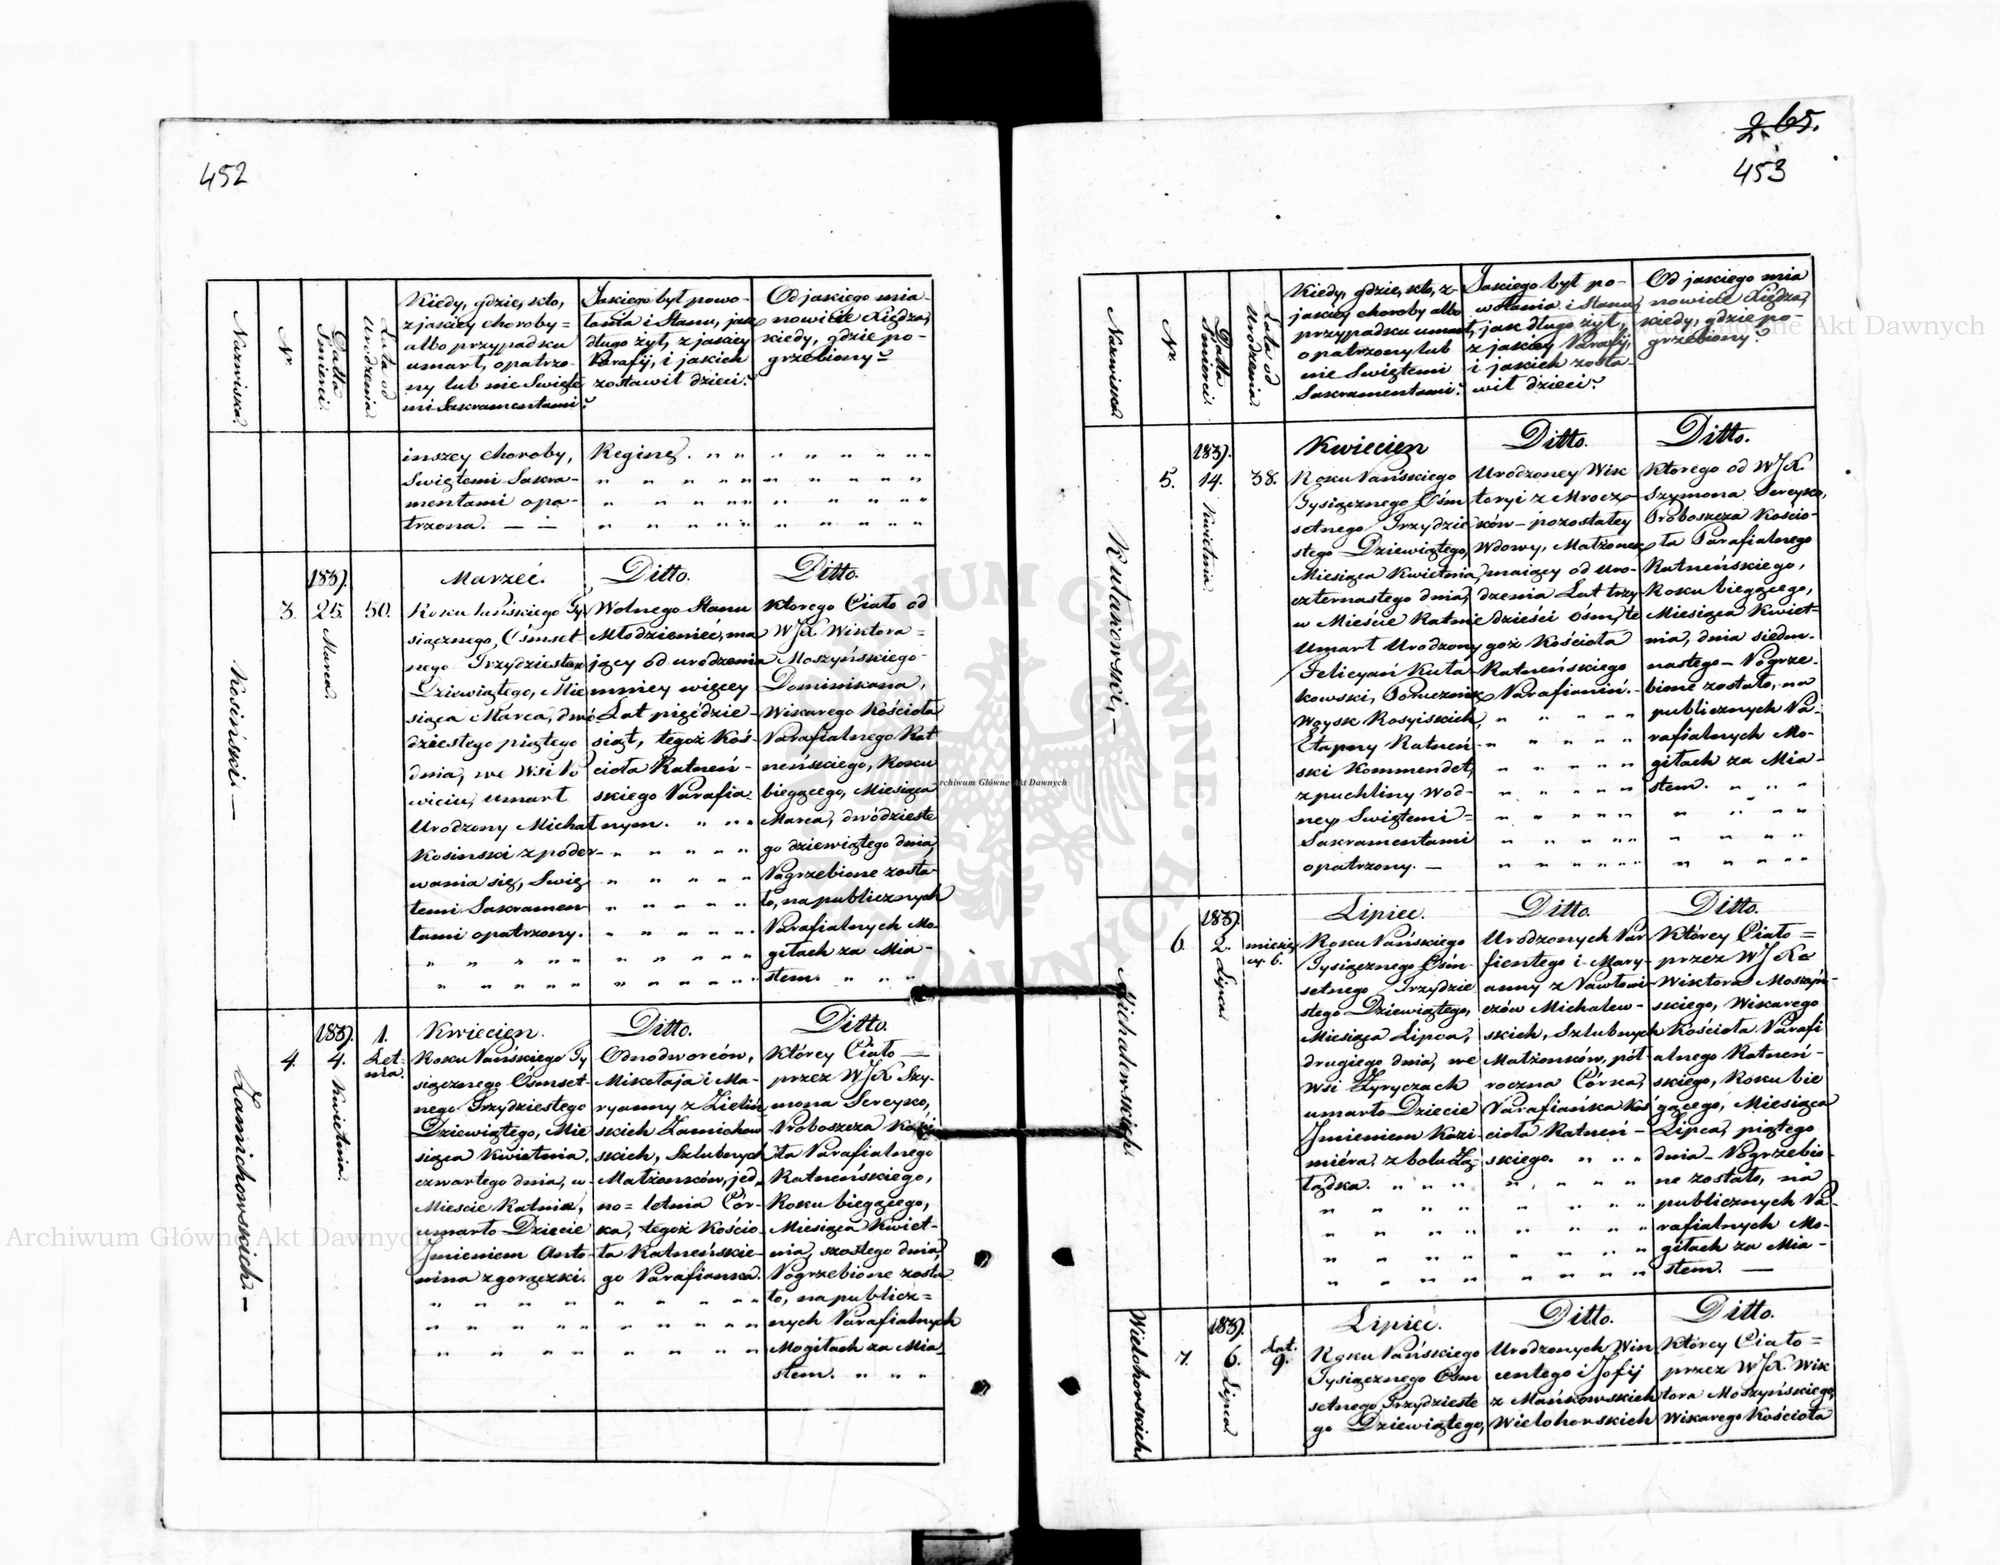 452
Nazwiska.
Nr.
Datta Śmierci.
Lata od Urodzenia
Kiedy, gdzie, kto,
z jakiey choroby =
albo przypadku
umarł, opatrzo-
ny lub nie Swięte
mi Sakramentami?
Jakiego był powo-
łania i Stanu, jak
długo żył, z jakiey
Parafij, i jakich
zostawił dzieci?
Od jakiego mia-
nowicie Xiędza,
kiedy, gdzie po-
grzebiony?
inszey choroby,
Swiętemi Sakra-
mentami opa-
trzona. — —
Reginę. " "
Kosiński. —
3.
1839.
25.
Marca.
50.
Marzec.
Roku Pańskiego Ty
siącznego, Ośmset-
nego Trzydziestego
Dziewiątego, Mie
siąca Marca, dwó
dziestego piątego
dnia, we Wsi
wiciu, umarł
Urodzony Michał
Kosinski z poder-
wania się, Swię
temi Sakramen
tami opatrzony.
Ditto.
Wolnego Stanu
Młodzieniec, ma
jący od urodzenia
mniey więcey
Lat pięćdzie-
siąt, tegoż Koś-
cioła Ratneń-
skiego Parafia-
nym. " " "
Ditto.
Ktorego Ciało od
WJX Wiktora =
Moszyńskiego-
Dominikana,
Wikarego Kościoła
Parafialnego Rat
neńskiego, Roku
bieżącego, Miesiąca
Marca, dwódzieste
go dziewiątego dnia,
Pogrzebione zosta-
ło, na publicznych
Parafialnych Mo-
giłach za Mia-
stem. " " "
Zamichowskich. —
4.
1839.
4.
Kwietnia.
1.
Let-
nia.
Kwiecien.
Roku Pańskiego Ty
siącznego Ośmset-
nego Trzydziestego
Dziewiątego, Mie
siąca Kwietnia,
czwartego dnia, w
Mieście Ratnie,
umarło Dziecie
Jmieniem Anto-
nina z gorączki.
Ditto.
Odnodworców,
Mikołaja i Ma-
ryanny z Zieliń
skich Zamichow
skich, Szlubnych
Małżonków, jed,
no= letnia Cór-
ka, tegoż Kościo-
ła Ratneńskie-
go Parafianka.
Ditto.
Którey Ciało —
przez WJX Szy-
mona Sereyko,
Proboszcza Kościo
ła Parafialnego
Ratneńskiego,
Roku bieżącego,
Miesiąca Kwiet-
nia, szostego dnia,
Pogrzebione zosta
ło, na publicz=
nych Parafialnych
Mogiłach za Mia
stem. " " "
265.
453
Nazwiska
Nr.
Datta Śmierci.
Lata od Urodzenia.
Kiedy, gdzie, kto, z
jakiey choroby albo
przypadku umarł,
opatrzony lub
nie Swiętemi
Sakramentami?
Jakiego był po-
wołania i Stanu,
jak długo żył,
z jakiey Parafij,
i jakich zosta-
wił dzieci?
Od jakiego mia
nowicie Xiędza,
kiedy, gdzie po-
grzebiony?
Kułakowski, —
5.
1839.
14.
Kwietnia.
38.
Kwiecien
Roku Pańskiego
Tysiącznego Ośm
setnego Trzydzie
stego Dziewiątego,
Miesiąca Kwietnia,
czternastego dnia,
w Mieście Ratnie
Umarł Urodzony
Felicyan Kuła-
kowski, Porucznik
Woysk Rosyiskich,
Etapny Ratneń-
ski Kommendet,
z puchliny Wod-
ney, Swiętemi =
Sakramentami
opatrzony. —
Ditto.
Urodzoney Wik
toryi z Mrocz-
ków – pozostałey
Wdowy, Małżonek
maiący od uro-
dzenia Lat trzy
dzieści ośm, te
goż Kościoła
Ratneńskiego
Parafianin. -
Ditto.
Ktorego od WJX
Szymona Sereyko,
Proboszcza Kościo-
ła Parafialnego
Ratneńskiego,
Roku bieżącego,
Miesiąca Kwiet-
nia, dnia siedm-
nastego – Pogrze-
bione zostało, na
publicznych Pa-
rafialnych Mo-
giłach za Mia-
stem. " " "
Michalewskich.
6.
1839.
2.
Lipca
miesię
cy 6.
Lipiec.
Roku Pańskiego
Tysiącznego Ośm-
setnego Trzydzie
stego Dziewiątego,
Miesiąca Lipca,
drugiego dnia, we
Wsi Zyryczach
umarło Dziecie
Jmieniem Kazi-
miéra, z bolu Żo-
łądka. " " "
Ditto.
Urodzonych Par
fientego i Mary-
anny z Pawłowi-
czów Michalew-
skich, Szlubnych
Małżonków, pół-
roczna Córka,
Parafiańka Koś
cioła Ratneń-
skiego. " " "
Ditto.
Którey Ciało =
przez WJXa
Wiktora Moszyń-
skiego, Wikarego
Kościoła Parafi
alnego Ratneń-
skiego, Roku bie
żącego, Miesiąca
Lipca, piątego
dnia – Pogrzebio-
ne zostało, na
publicznych Pa-
rafialnych Mo-
giłach za Mia-
stem. —
Wielohorskich
7.
1839.
6.
Lipca
Lat.
9.
Lipiec.
Roku Pańskiego
Tysiącznego Ośm
setnego Trzydzieste
go Dziewiątego,
Ditto.
Urodzonych Win
centego i Zofij
z Mańkowskich
Wielohorskich
Ditto.
Którey Ciało =
przez WJX. Wik
tora Moszyńskiego,
Wikarego Kościoła
Archiwum Główne Akt Dawnych
Archiwum Główne Akt Dawnych
Archiwum Główne Akt Dawnych